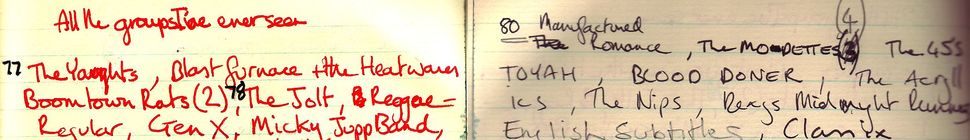 All the groups I've ever seen
77 The Yachts, Blast Furnace + the Heatwaves
Boomtown Rats (2) 78 The Jolt, Reggae =
Regular, Gen X, Micky Jupp Band,
80 Manufactured (4)
Romance, The MO-DETTES The 45s
TOYAH, BLOOD DONER, The Acryll
ics, The Nips, Dexys Midnyght Runners
English Subtitles, Clamix